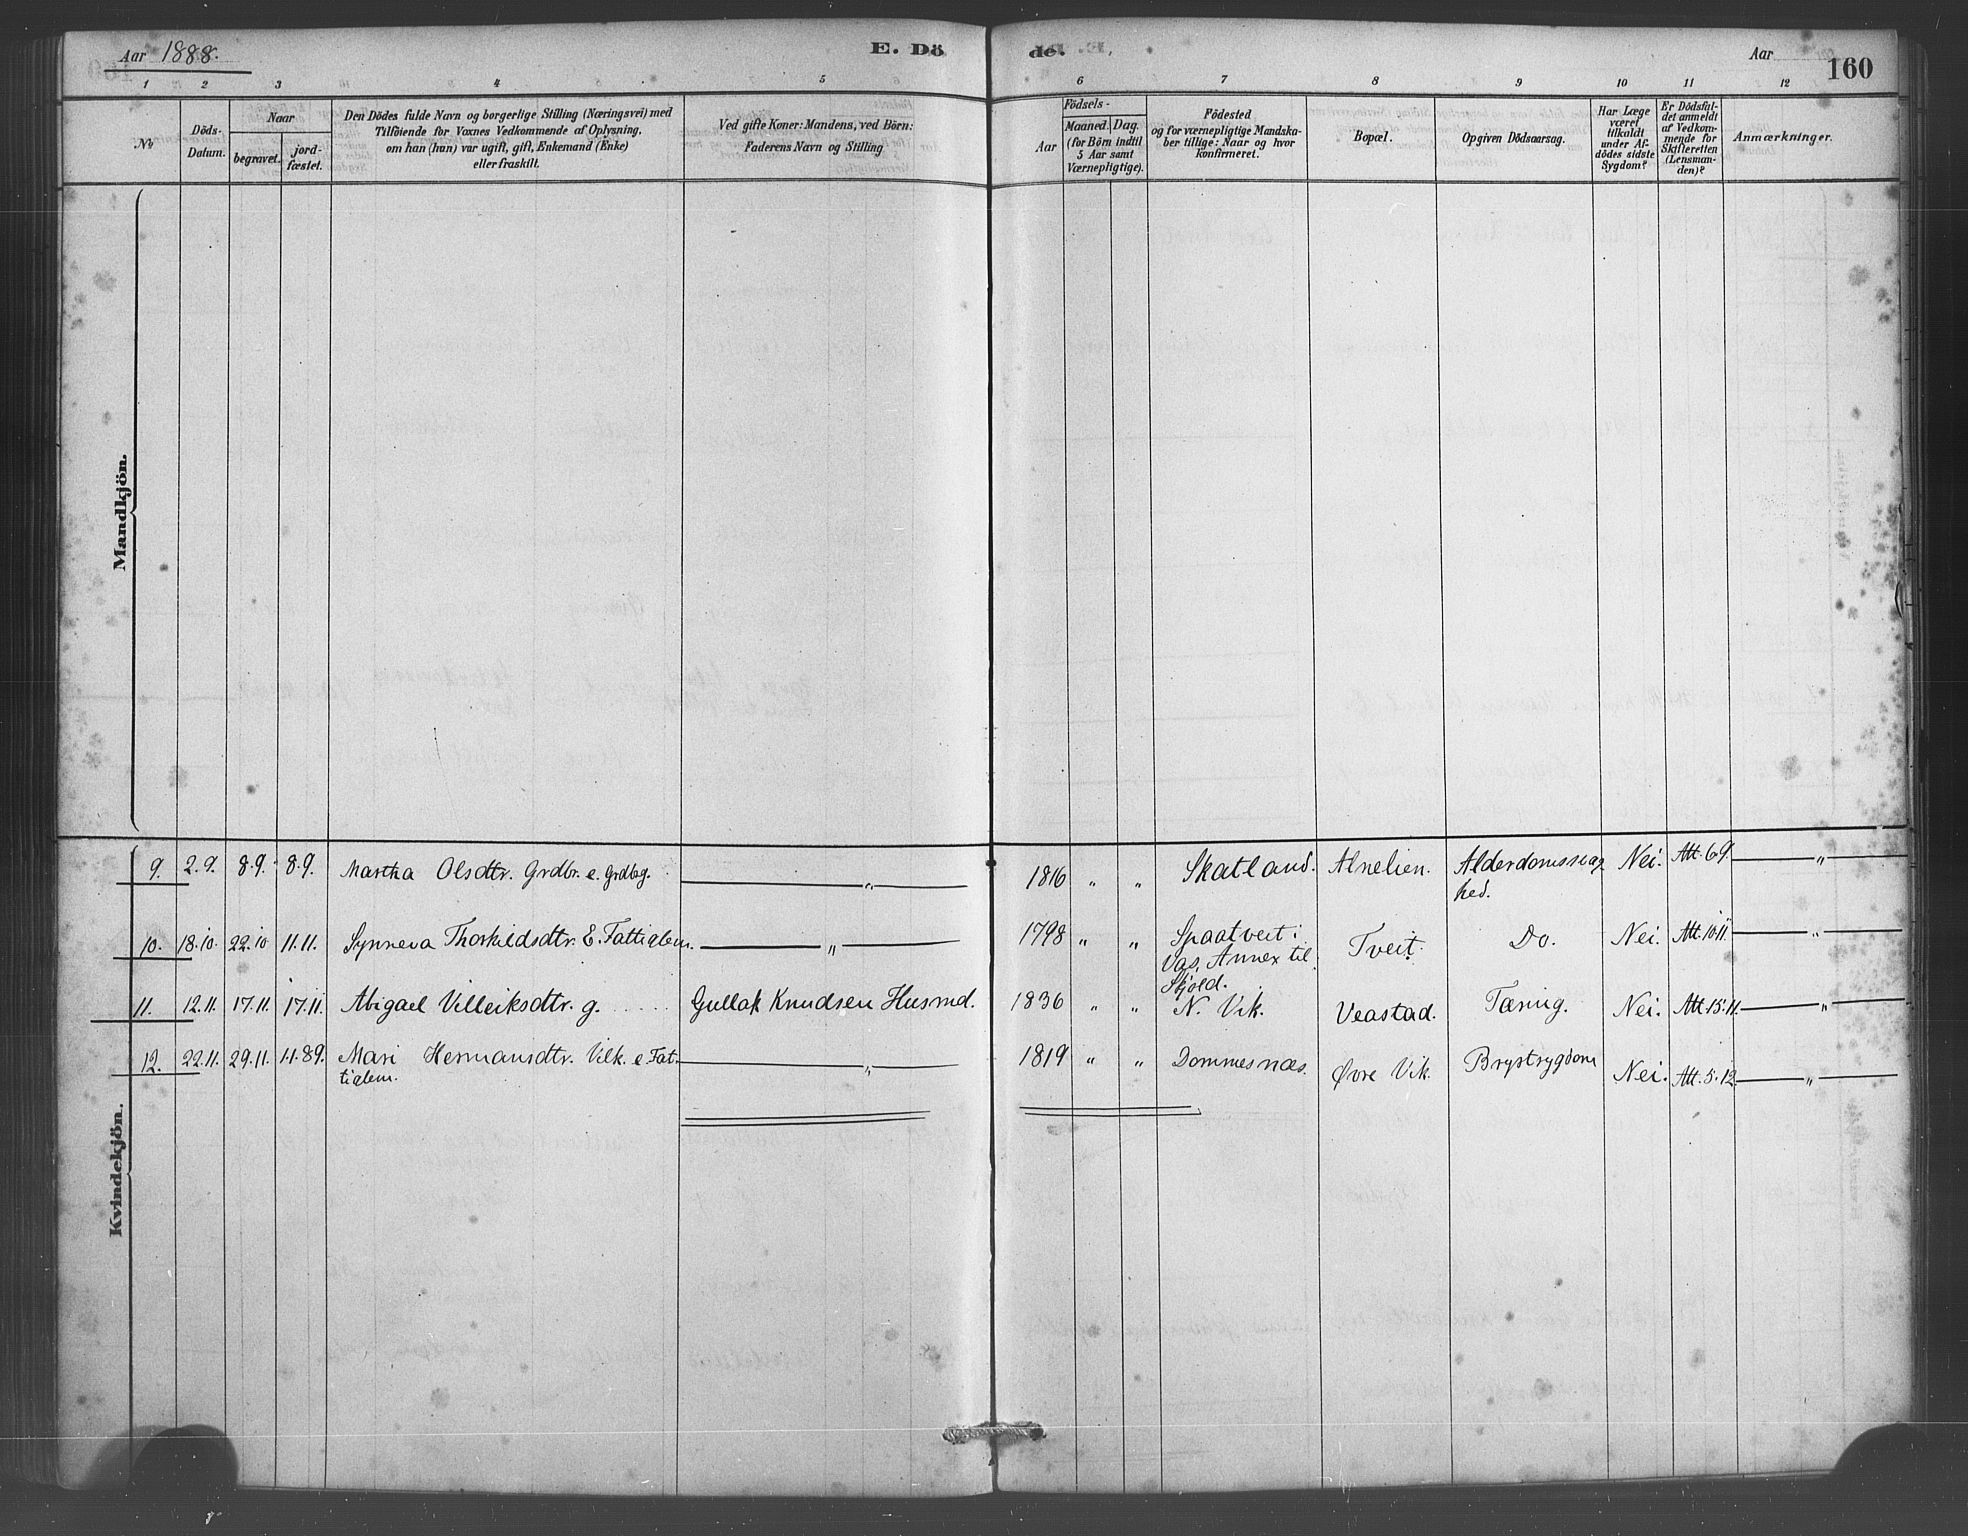 Aar 1888.
E. Döde.
Aar
160
1 2 3 4 5 6 7 8 9 10 11 12
No
Döds-
Datum.
Naar
begravet.
jord-
fæstet.
Den Dödes fulde Navn og borgerlige Stilling (Næringsvei) med
Tilföiende for Voxnes Vedkommende af Oplysning,
om han (hun) var ugift, gift, Enkemand (Enke)
eller fraskilt.
Ved gifte Koner: Mandens, ved Börn:
Faderens Navn og Stilling
Födsels-
Aar
Maaned. Dag.
(for Börn indtil
5 Aar samt
Værnepligtige).
Födested
og for værnepligtige Mandska-
ber tillige: Naar og hvor
konfirmeret.
Bopæl.
Opgiven Dödsaarsag.
Har Læge
været
tilkaldt
under Af-
dödes sidste
Sygdom?
Er Dödsfal-
det anmeldt
af Vedkom-
mende for
Skifteretten
(Lensman-
den)?
Anmærkninger.
Mandkjön.
Kvindekjön.
9. 2.9. 8.9. 8.9. Martha Olsdtr. Grdbr. e. Grdbg. " 1816 " " Skatland. Alnelien. Alderdomssvag Nei. Att. 6.9. "
hed.
10. 18.10 22.10 11.11. Synneva Thorkildsdtr. E. Fattiglem. " 1798 " " Spaatveit i Tveit. Do. Nei. Att. 10.11. "
Vas, Annex til
Skjold.
11. 12.11. 17.11. 17.11. Abigael Villeiksdtr. g. Gullak Knudsen Husmd. 1836 " " N. Vik. Veastad. Tæring. Nei. Att. 15.11. "
12. 22.11. 29.11. 1.1.89. Mari Hermansdtr. Vik. e. Fat- " 1819 " " Dommesnæs. Øvre Vik. Brystsygdom Nei. Att. 5.12. "
tiglem.